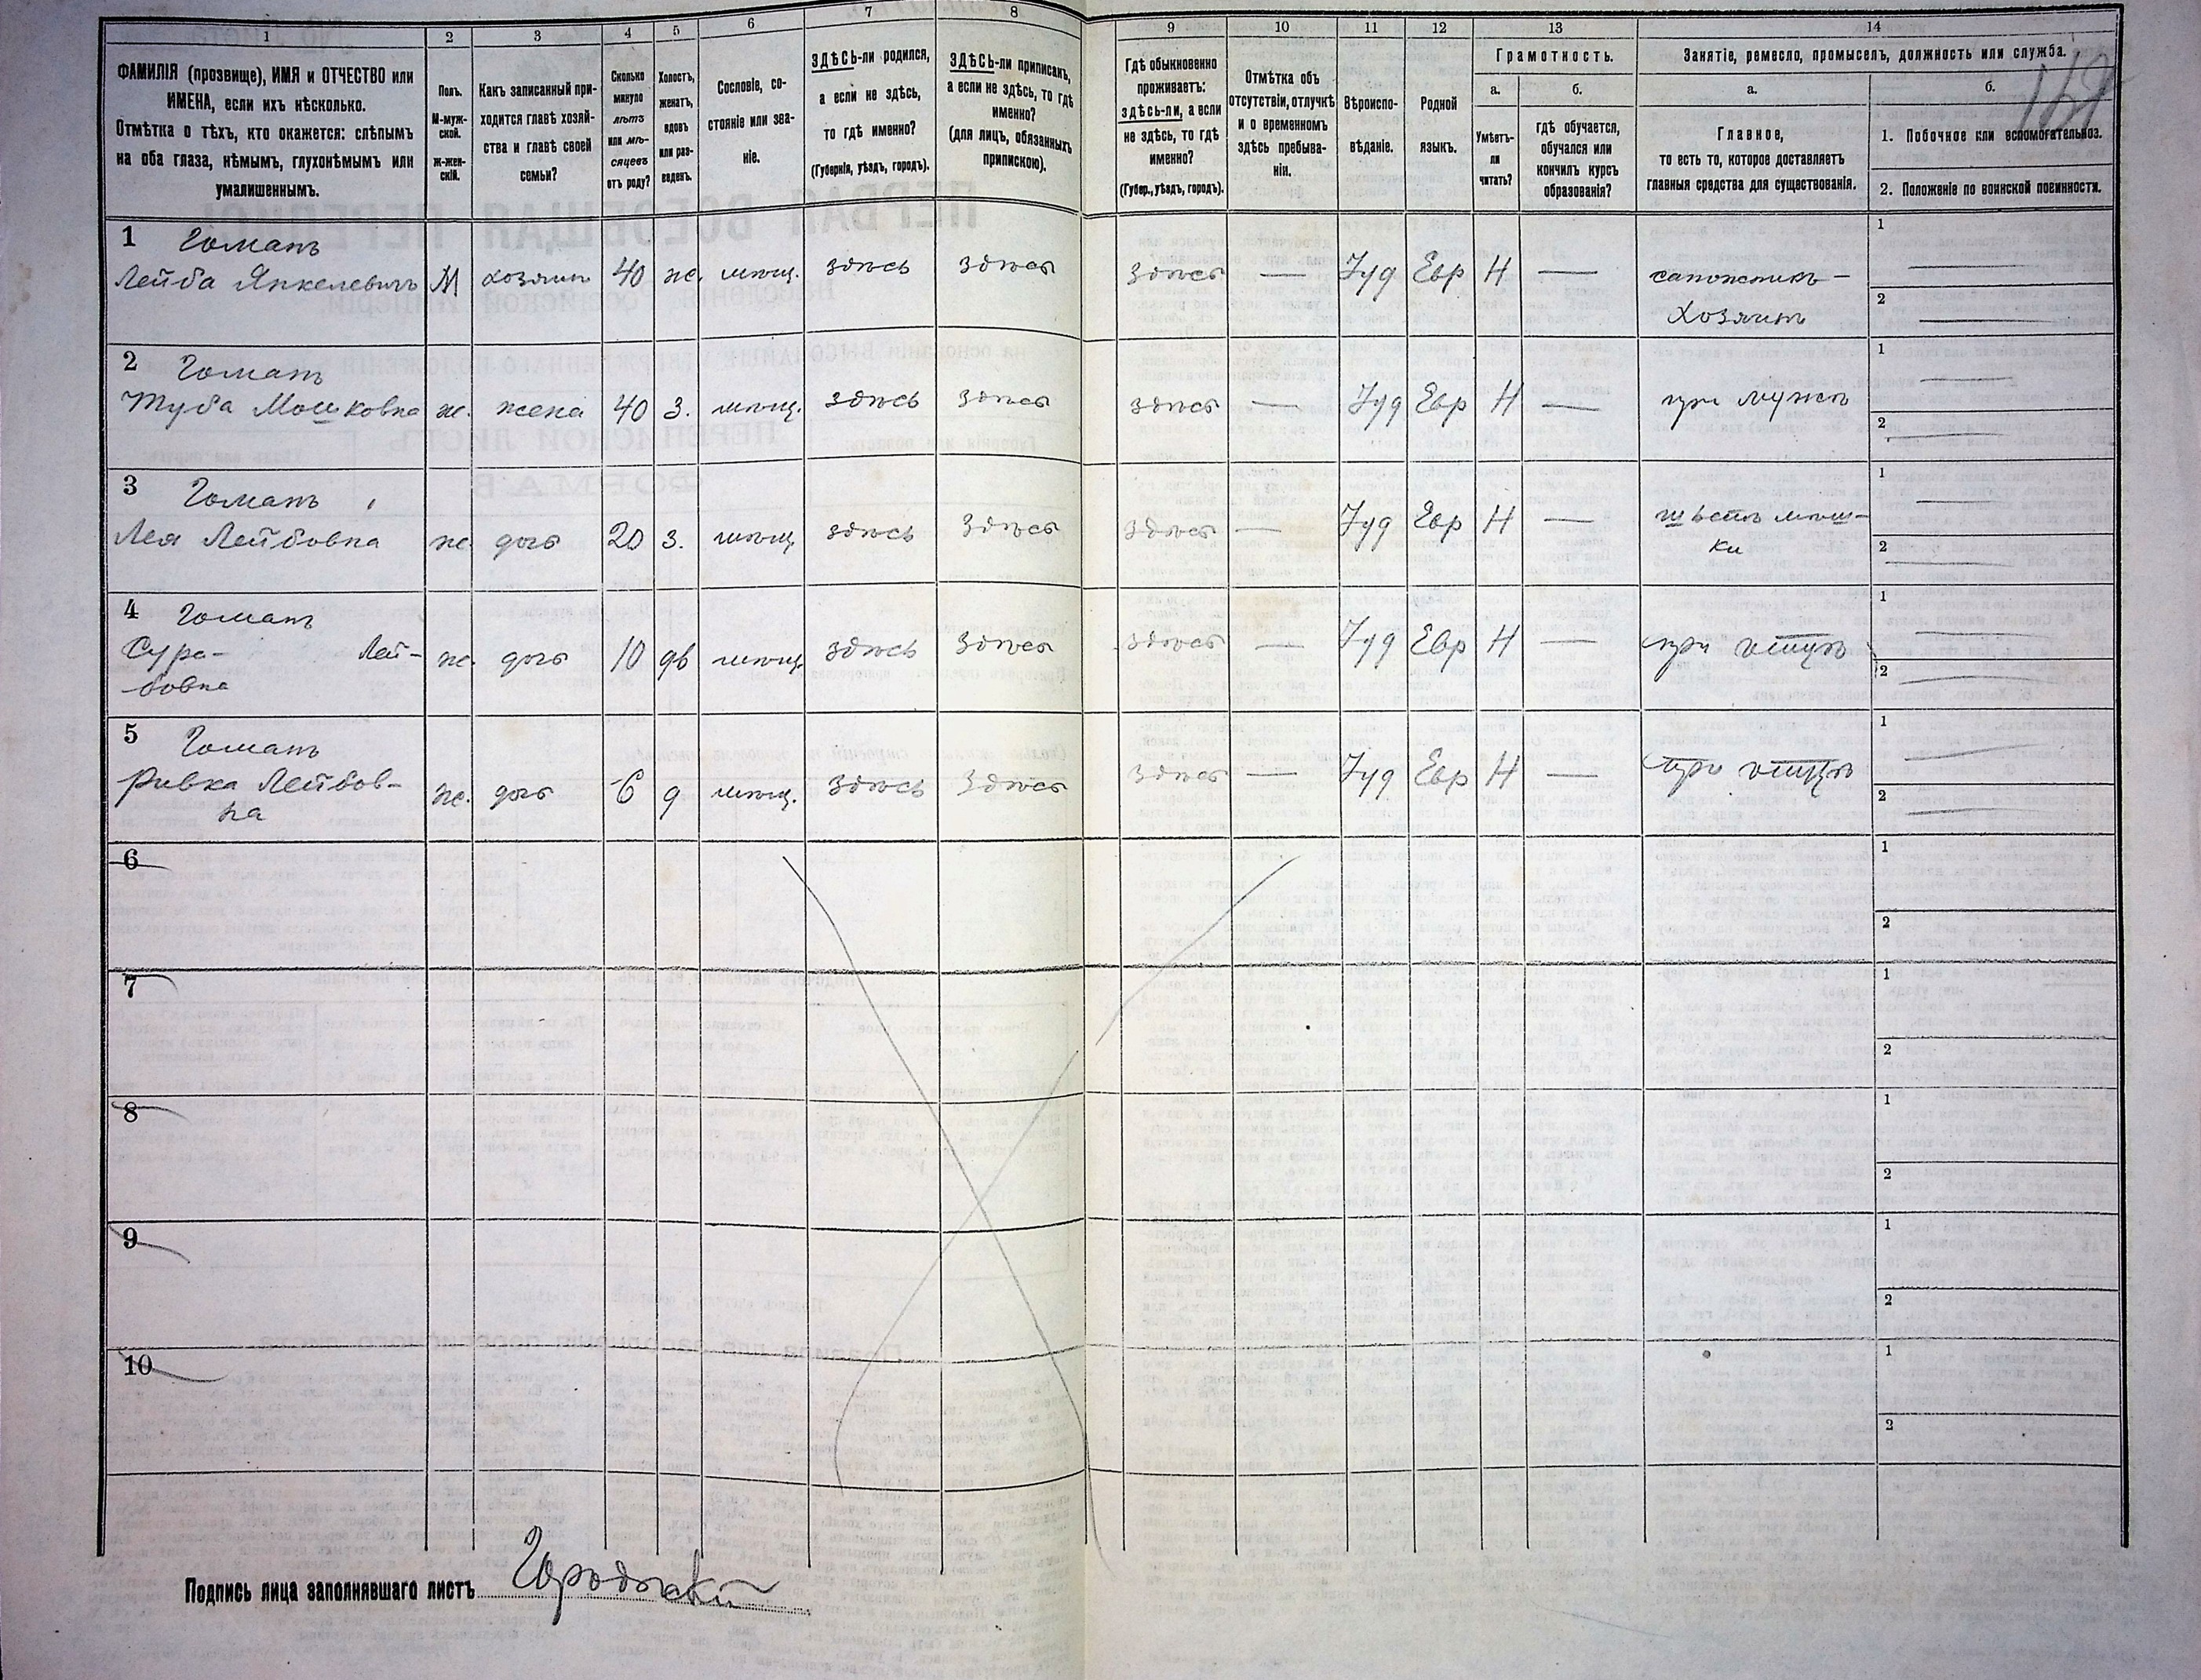 1
2
3
4
5
6
7
8
9
10
11
12
13
14
ФАМИЛІЯ (прозвище), ИМЯ и ОТЧЕСТВО или
ИМЕНА, если ихъ нѣсколько.
Отмѣтка о тѣхъ, кто окажется: слѣпымъ
на оба глаза, нѣмымъ, глухонѣмымъ или
умалишеннымъ.
Полъ.
М-муж-
ской.
Ж-жен-
скій.
Какъ записанный при-
ходится главѣ хозяй-
ства и главѣ своей
семьи?
Сколько
минуло
лѣтъ
или мѣ-
сяцевъ
отъ роду?
Холостъ,
женатъ,
вдовъ
или раз-
веденъ.
Сословіе, со-
стояніе или зва-
ніе.
ЗДѢСЬ-ли родился,
а если не здѣсь,
то гдѣ именно?
(Губернія, уѣздъ, городъ).
ЗДѢСЬ-ли приписанъ,
а если не здѣсь, то гдѣ
именно?
(для лицъ, обязанныхъ
припискою).
Гдѣ обыкновенно
проживаетъ:
здѣсь-ли, а если
не здѣсь, то гдѣ
именно?
(Губер., уѣздъ, городъ).
Отмѣтка объ
отсутствіи, отлучкѣ
и о временномъ
здѣсь пребыва-
ніи.
Вѣроиспо-
вѣданіе.
Родной
языкъ.
Грамотность.
а.
Умѣетъ-
ли
читать?
б.
гдѣ обучается,
обучался или
кончилъ курсъ
образованія?
Занятіе, ремесло, промыселъ, должность или служба.
а.
Главное,
то есть то, которое доставляетъ
главныя средства для существованія.
б.
1. Побочное или вспомогательное.
2. Положеніе по воинской повинности.
1 Гоманъ
Лейба Янкелевичъ М хозяинъ 40 ж. мѣщ. здѣсь здѣсь здѣсь — Іуд Евр Н — сапожникъ —
хозяинъ
1 —
2 —
2 Гоманъ
Туба Мошковна ж. жена 40 з. мѣщ. здѣсь здѣсь здѣсь — Іуд Евр Н — при мужѣ
1 —
2 —
3 Гоманъ
Лея Лейбовна ж. дочь 20 з. мѣщ. здѣсь здѣсь здѣсь — Іуд Евр Н — шьетъ мѣш-
ки
1 —
2 —
4 Гоманъ
Сура- Лей-
бовна ж. дочь 10 дв мѣщ. здѣсь здѣсь здѣсь — Іуд Евр Н — при отцѣ
1 —
2 —
5 Гоманъ
Ривка Лейбов-
на ж. дочь 6 д мѣщ. здѣсь здѣсь здѣсь — Іуд Евр Н — при отцѣ
1 —
2 —
6
1
2
7
1
2
8
1
2
9
1
2
10
1
2
Подпись лица заполнявшаго листъ